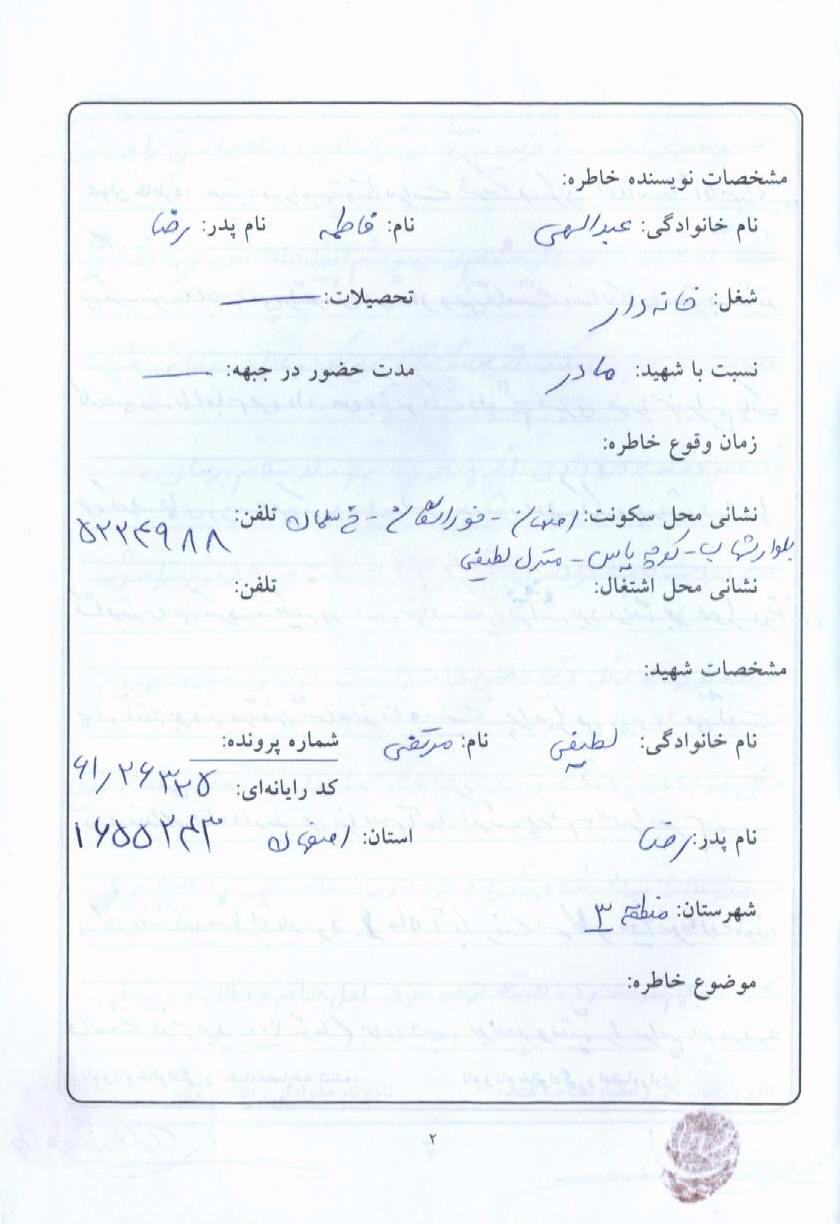 مشخصات نویسنده خاطره:
نام خانوادگی: عبدالهی نام: فاطمه نام پدر: رضا
شغل: خانه دار تحصیلات: ــــ
نسبت با شهید: مادر مدت حضور در جبهه: ــــ
زمان وقوع خاطره:
نشانی محل سکونت: اصفهان - خوراسگان - خ سلمان تلفن: ۵۲۲۴۹۸۸
بلوار شهاب - کوچه یاس - منزل لطیفی
نشانی محل اشتغال: تلفن:
مشخصات شهید:
نام خانوادگی: لطیفی نام: مرتضی شماره پرونده:
کد رایانه‌ای: ۶۱/۲۶۳۲۵
نام پدر: رضا استان: اصفهان ۱۶۵۵۲۴۳
شهرستان: منطقه ۳
موضوع خاطره:
۲